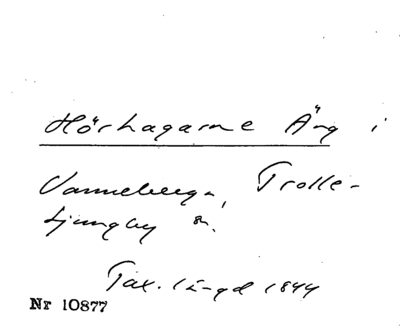 Hörhagarne Äng i
Vanneberga, Trolle-
Ljungby sn.
Tax. längd 1844
Nr 10877